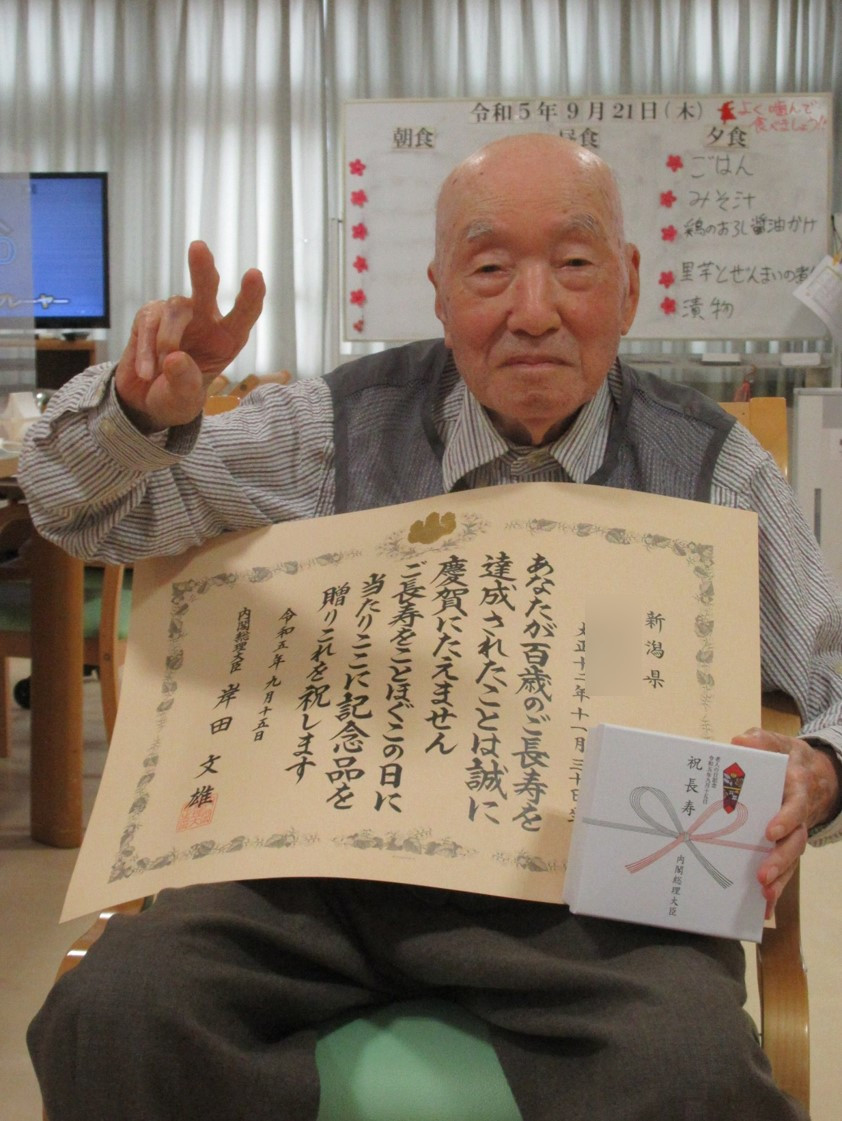 令和5年9月21日(木)
よく噛んで
食べましょう!!
朝食
昼食
夕食
ごはん
みそ汁
鶏のおろし醤油かけ
里芋とぜんまいの煮
漬物
レーヤー
新潟県
大正十二年十一月三十日
あなたが百歳のご長寿を
達成されたことは誠に
慶賀にたえません
ご長寿をことほぐこの日に
当たりここに記念品を
贈りこれを祝します
令和五年九月十五日
内閣総理大臣 岸田文雄
老人の日記念
令和五年九月十五日
祝長寿
内閣総理大臣